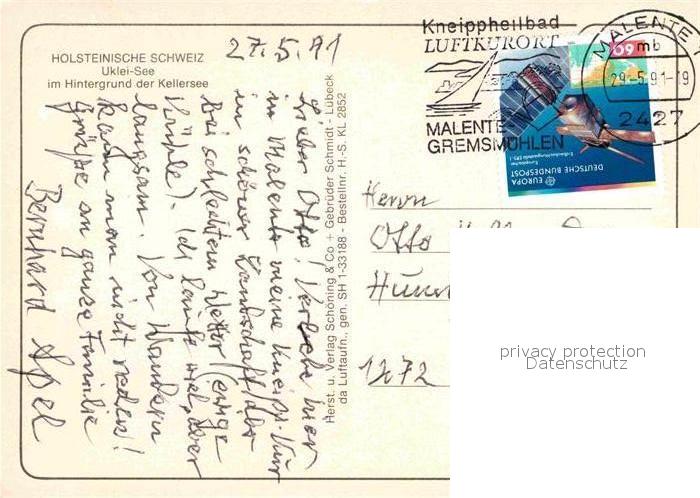 HOLSTEINISCHE SCHWEIZ
Uklei-See
im Hintergrund der Kellersee
27.5.91
Lieber Otto! hier
in Malente meine Kneipp-Kur
in schöner Landschaft
Bei schlechtem Wetter (einige
Ich laufe viel, aber
langsam. Von Wandern
kann man nicht reden!
Grüße an ganze Familie
Bernhard Apel
Herst. u. Verlag Schöning & Co + Gebrüder Schmidt - Lübeck
da Luftaufn., gen. SH 1-33188 - Bestellnr. H.-S. KL 2852
Kneippheilbad
LUFTKURORT
MALENTE
GREMSMÜHLEN
MALENTE
mb
29.-5.91-19
2427
60
EUROPA
DEUTSCHE BUNDESPOST
Herrn
Otto
privacy protection
Datenschutz